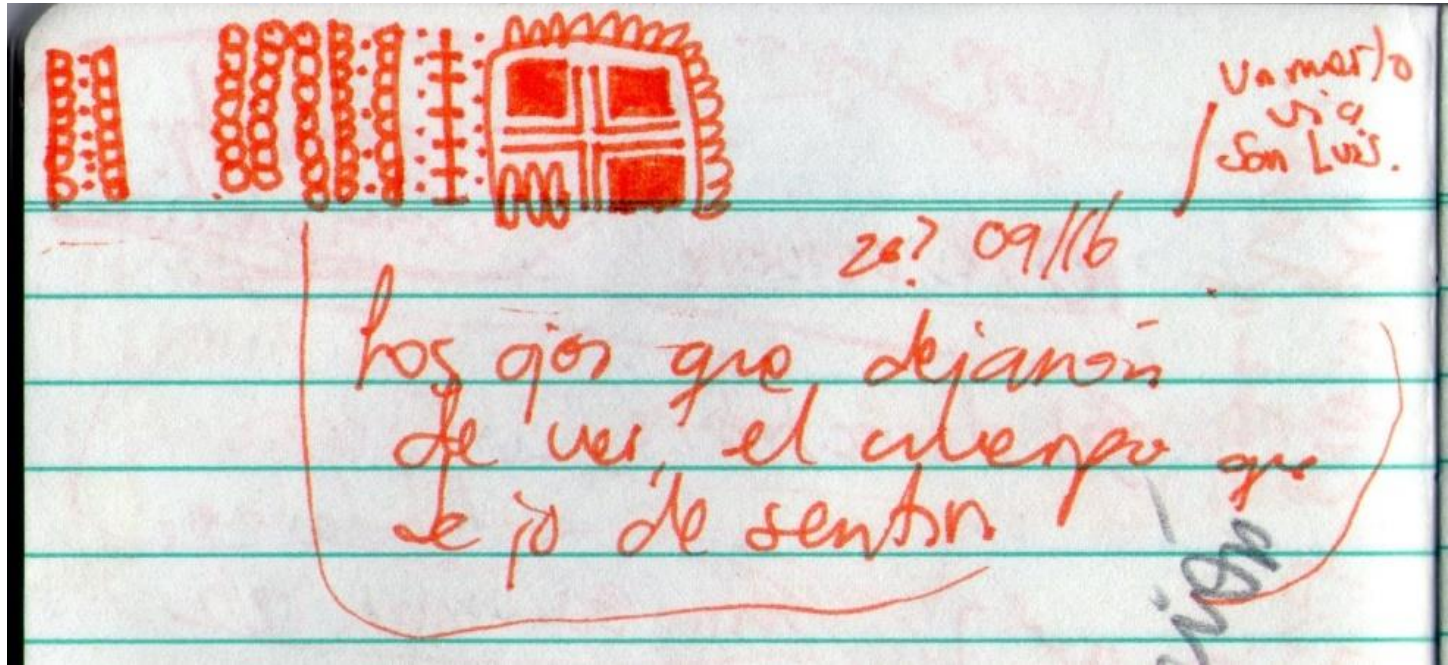 Un muerto
vía
San Luis.
09/16
Los ojos que dejaron
de ver, el cuerpo que
dejó de sentir